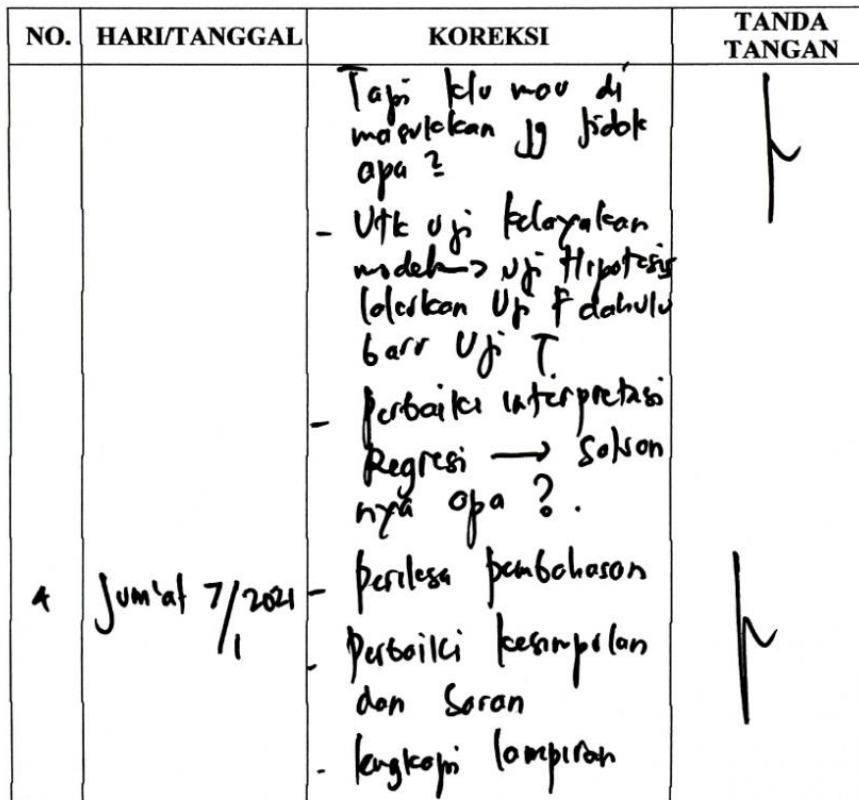 NO. HARI/TANGGAL KOREKSI TANDA TANGAN
Tapi klu mau di
masukkan jg tidak
apa ?
- Utk uji kelayakan
model → uji Hipotesis
lakukan Uji F dahulu
baru Uji T
- perbaiki interpretasi
Regresi → satuan
nya apa ?.
4 Jum'at 7/1 2021 - periksa pembahasan
- perbaiki kesimpulan
dan Saran
- lengkapi lampiran